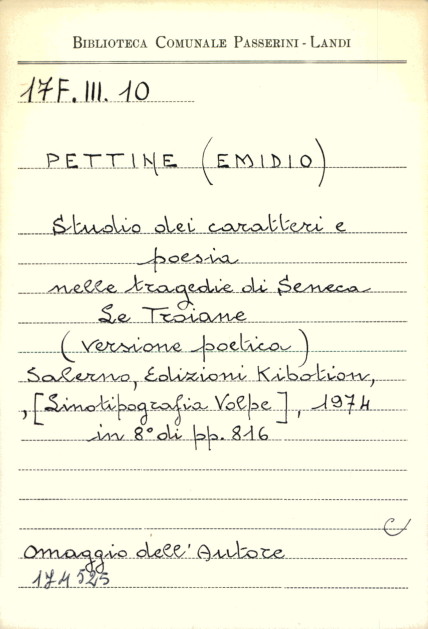 BIBLIOTECA COMUNALE PASSERINI - LANDI
17F. III. 10
PETTINE (EMIDIO)
Studio dei caratteri e
poesia
nelle tragedie di Seneca
Le Troiane
(versione poetica)
Salerno, Edizioni Kibotion,
,[Linotipografia Volpe], 1974
in 8° di pp. 816
C
Omaggio dell'Autore
174525